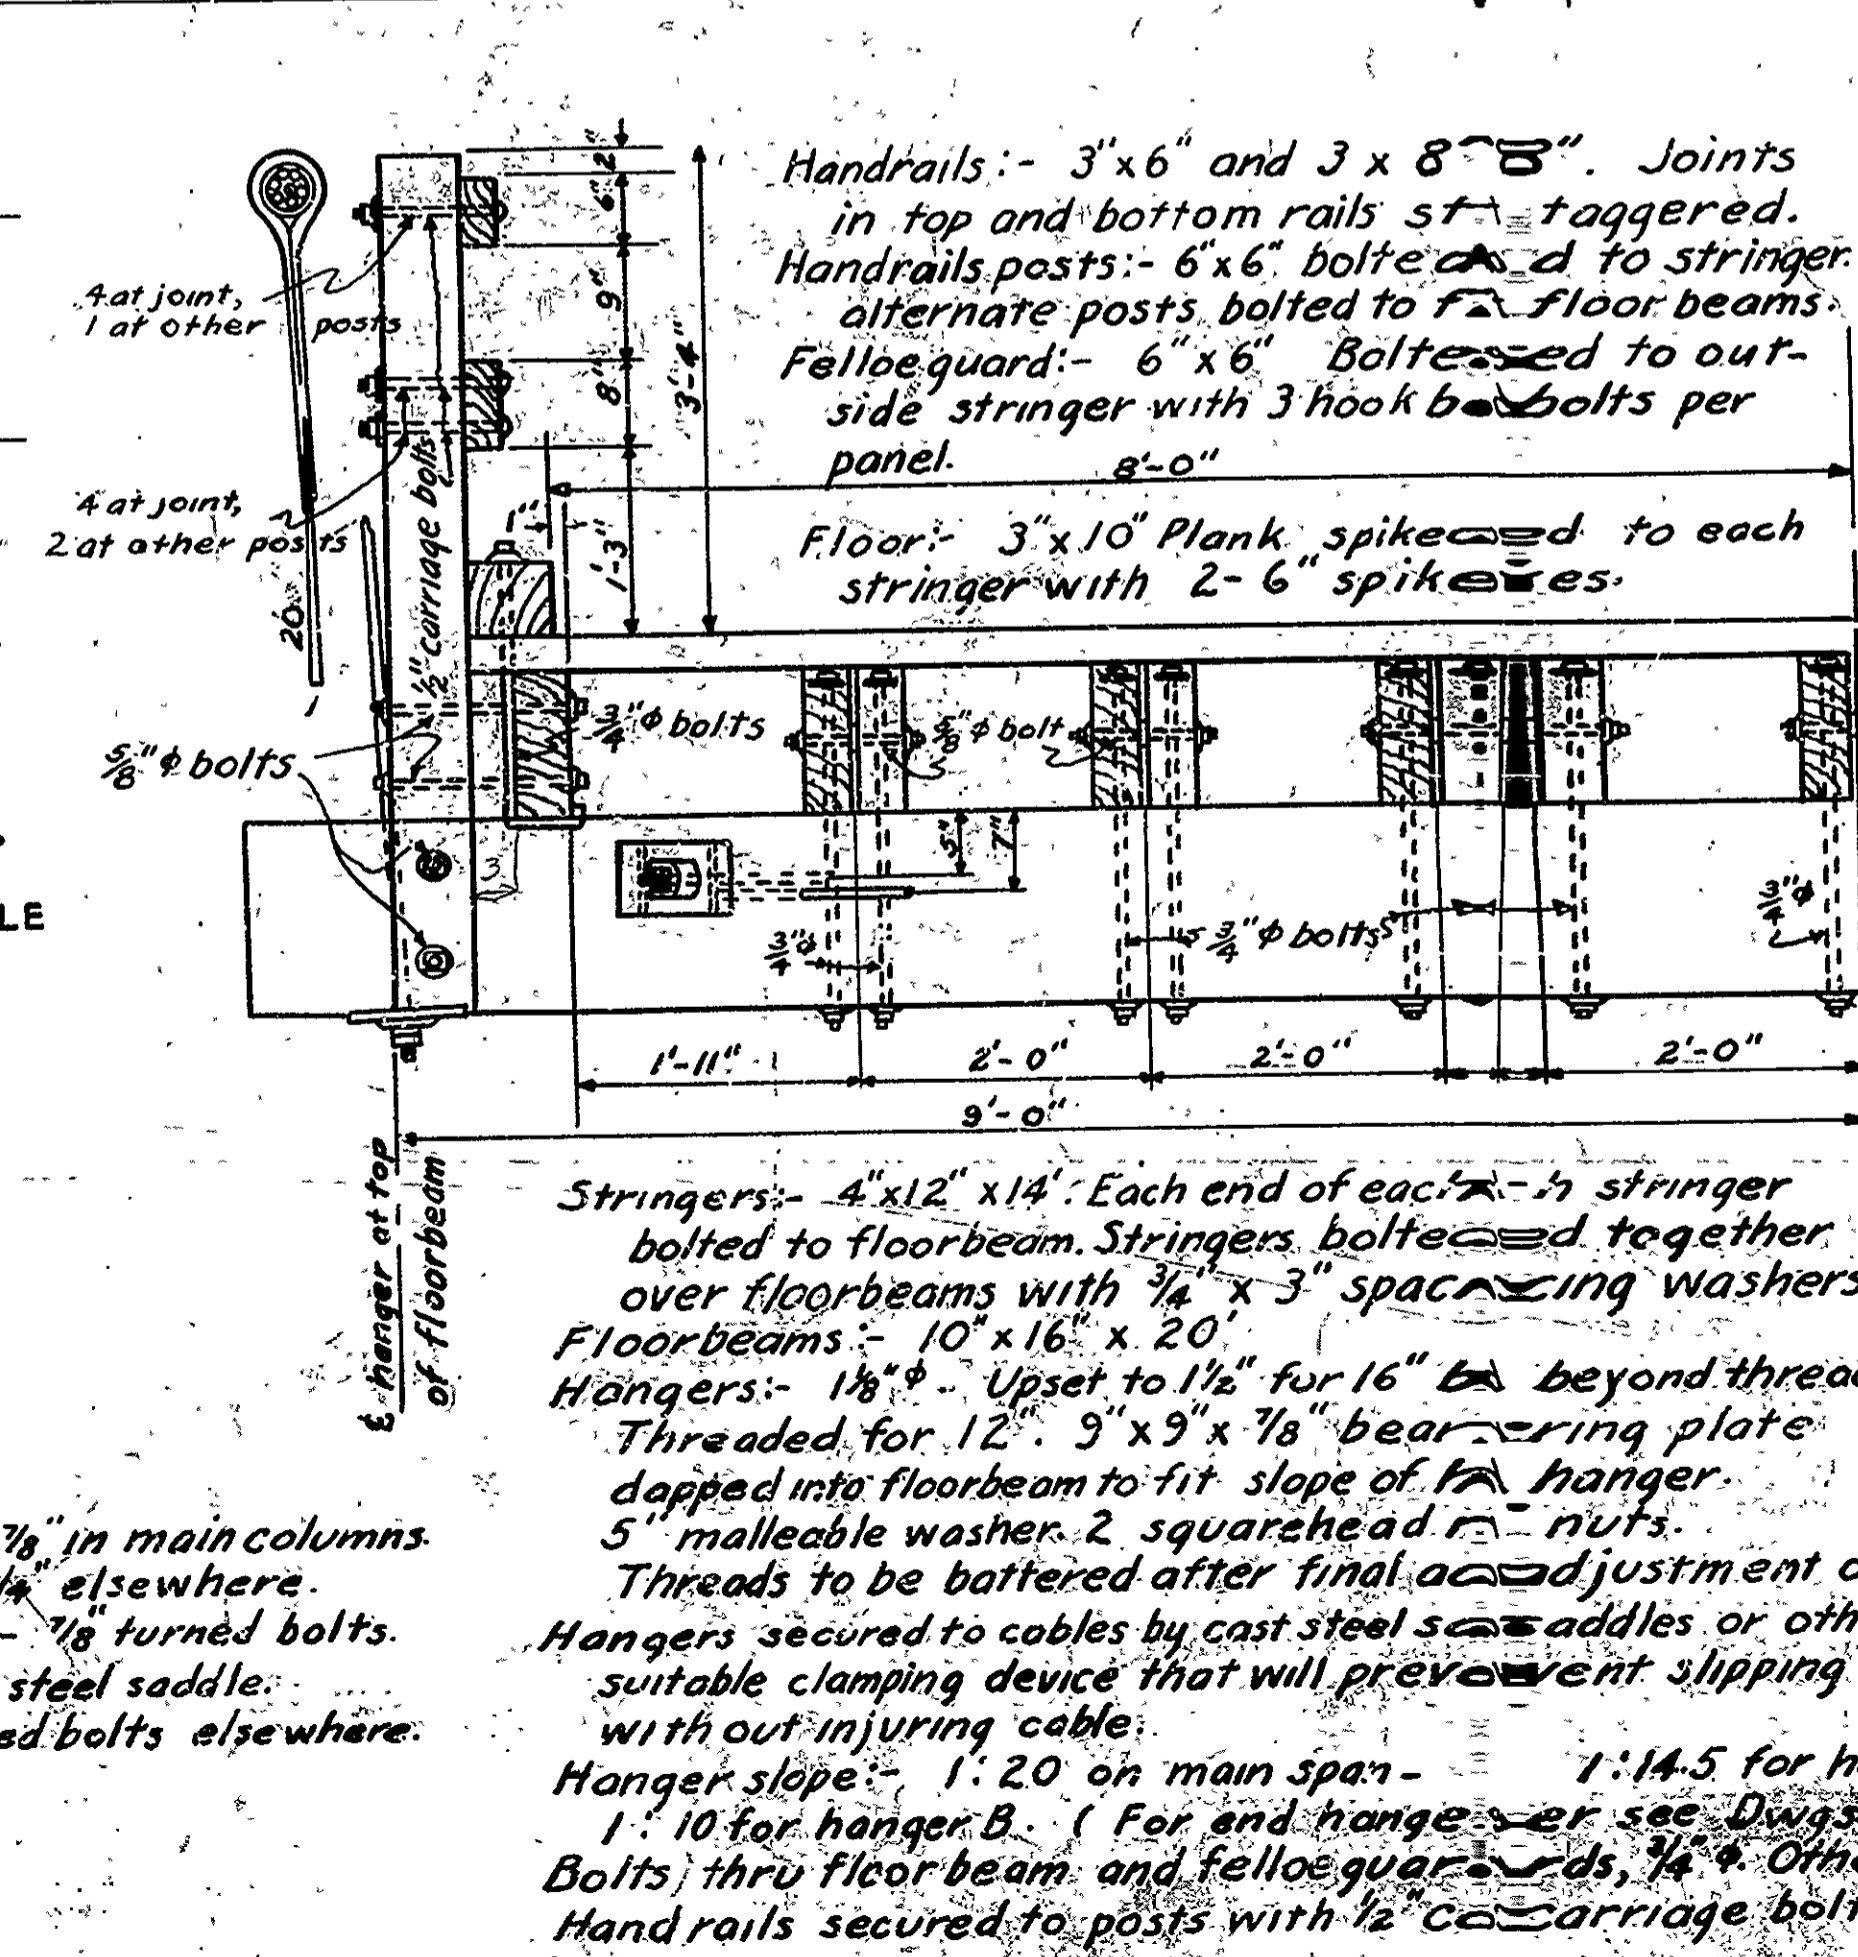 Handrails:- 3"x6" and 3 x 8". Joints
in top and bottom rails staggered.
Handrails posts:- 6"x6" bolted to stringer.
alternate posts bolted to floor beams.
Felloe guard:- 6"x6" Bolted to out-
side stringer with 3 hook bolts per
panel.
8'-0"
Floor:- 3"x10" Plank spiked to each
stringer with 2-6" spikes.
2"
6"
9"
8"
1'-3"
3'-4"
1"
4 at joint,
1 at other posts
4 at joint,
2 at other posts
1/2" carriage bolts
20
1
5/8" φ bolts
3/4" φ bolts
5/8" φ bolt
3
5"
7"
3/4" φ
3/4" φ bolts
3/4" φ
LE
1'-11"
2'-0"
2'-0"
2'-0"
9'-0"
℄ hanger at top
of floorbeam
Stringers:- 4"x12"x14'. Each end of each stringer
bolted to floorbeam. Stringers bolted together
over floorbeams with 3/4" x 3" spacing washers
Floorbeams:- 10"x16" x 20'
Hangers:- 1 1/8" φ. Upset to 1 1/2" for 16" beyond
Threaded for 12". 9"x9"x 7/8" bearing plate
dapped into floorbeam to fit slope of hanger.
5" malleable washer. 2 squarehead nuts.
Threads to be battered after final adjustment
Hangers secured to cables by cast steel saddles or
suitable clamping device that will prevent slipping
without injuring cable.
Hanger slope:- 1:20 on main span- 1:14.5 for
1:10 for hanger B. (For end hanger see Dwgs
Bolts thru floor beam and felloe guards, 3/4" φ.
Handrails secured to posts with 1/2" carriage
7/8" in main columns.
elsewhere.
- 7/8" turned bolts.
steel saddle.
bolts elsewhere.